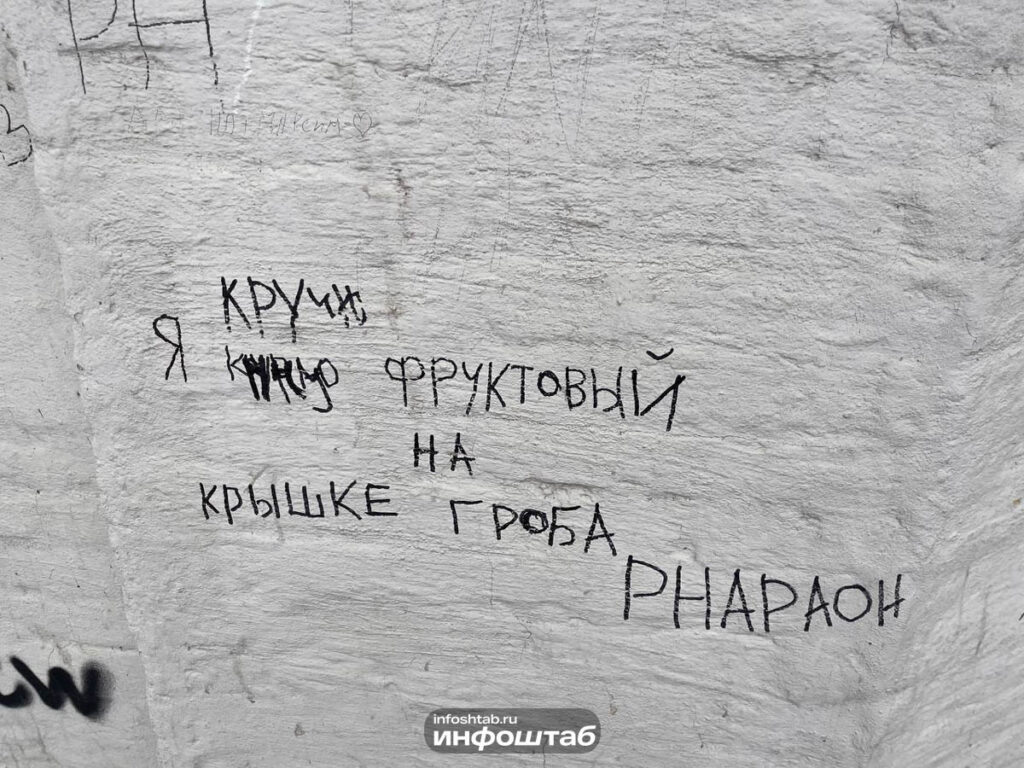 РН
КРУЧУ
Я ФРУКТОВЫЙ
НА
КРЫШКЕ ГРОБА
PHAРАОН
infoshtab.ru
ИНФОШТАБ